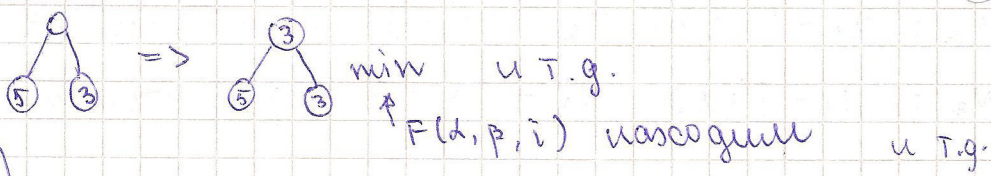 5 3 => 3 5 3 min и т.д.
F(α, β, i) находим и т.д.